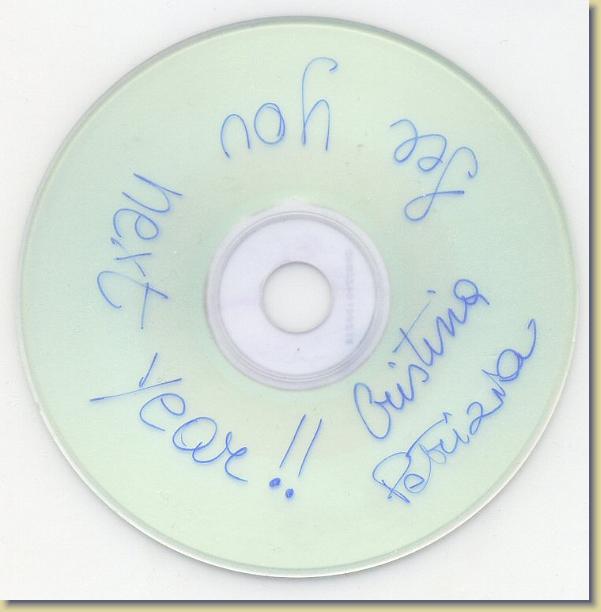 See you next year!!
Cristina
Patrizia